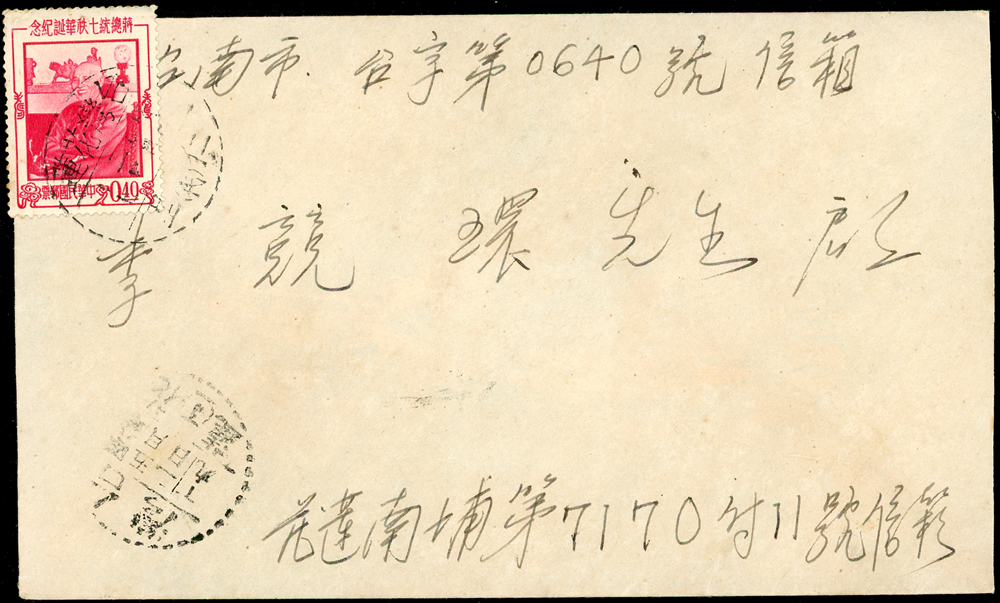 念紀誕華秩七統總蔣
票郵國民華中
0.40
台南市 台字第0640號信箱
李競環先生啟
花蓮南埔第7170付11號信箱